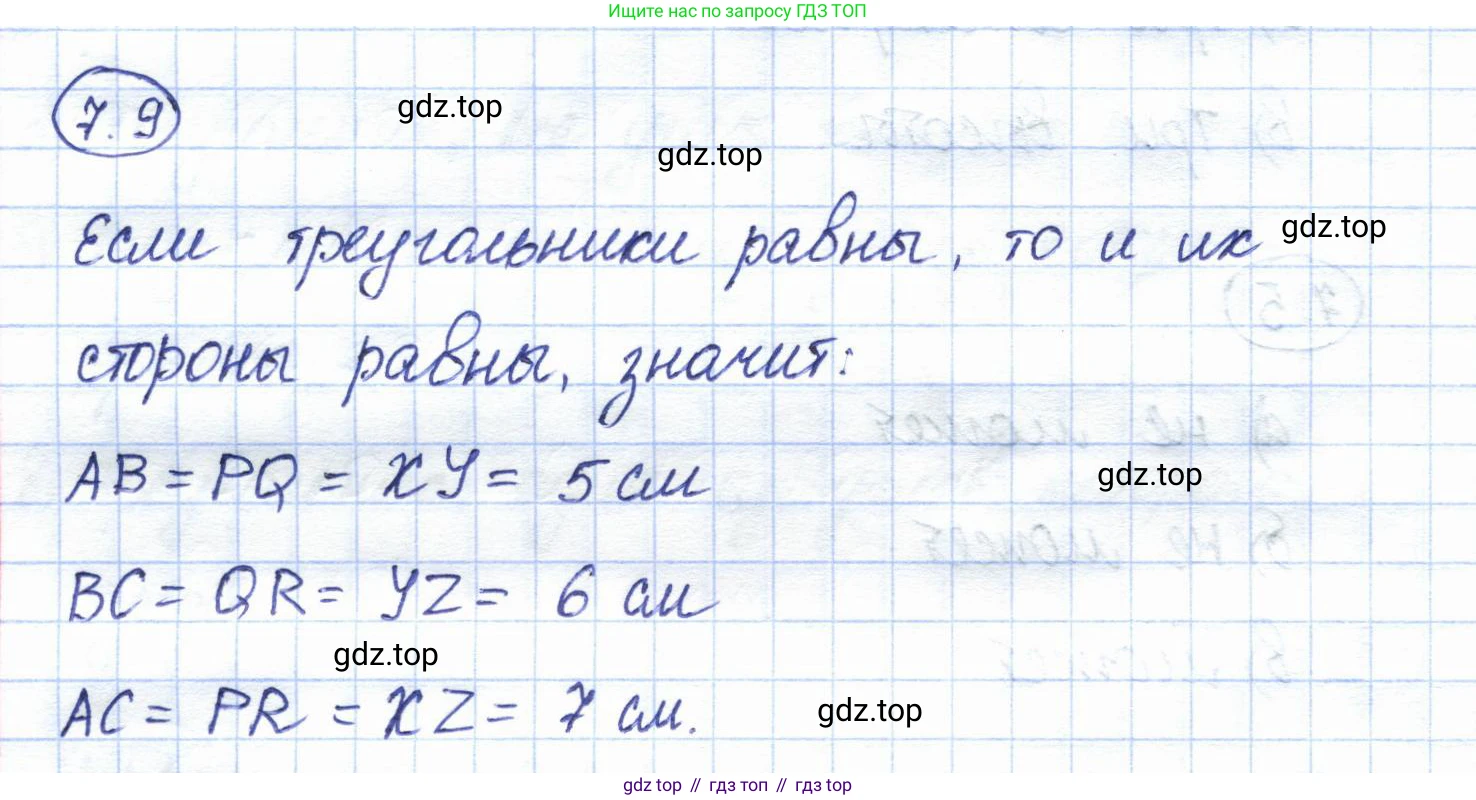 Ищите нас по запросу ГДЗ ТОП
7.9
gdz.top
gdz.top
Если треугольники равны, то и их
gdz.top
стороны равны, значит:
AB = PQ = XY = 5 см
gdz.top
BC = QR = YZ = 6 см
gdz.top
AC = PR = XZ = 7 см.
gdz.top
gdz top // гдз топ // gdz top